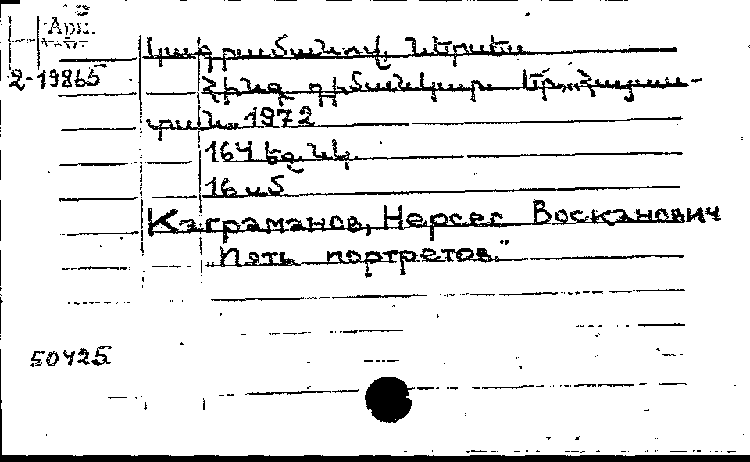 Арм.
2-19865
Կագրամանով, Ներսես
Հինգ դիմանկար. Եր., „Հայաս-
տան„ 1972
164 եջ. նկ.
16 սմ
Каграманов, Нерсес Восканович
„Пять портретов."
50425